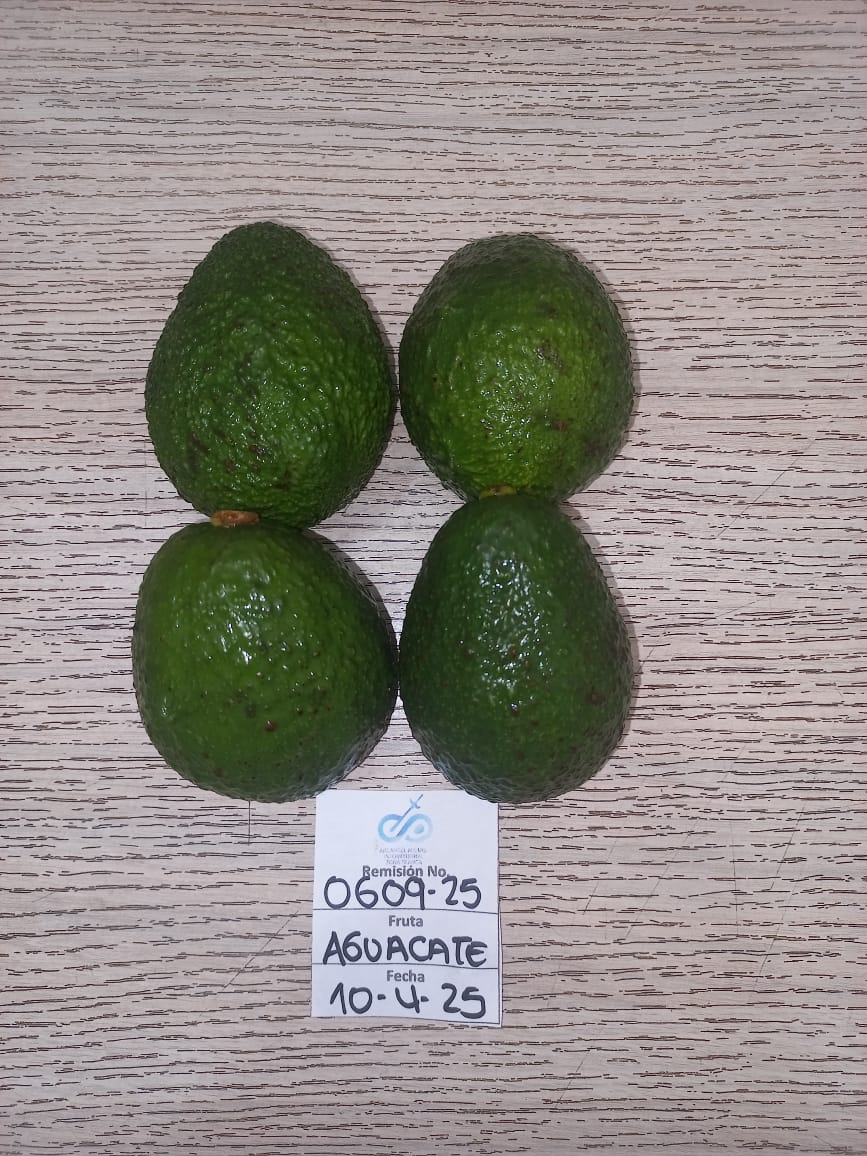 Remisión No.
0609-25
Fruta
AGUACATE
Fecha
10-4-25